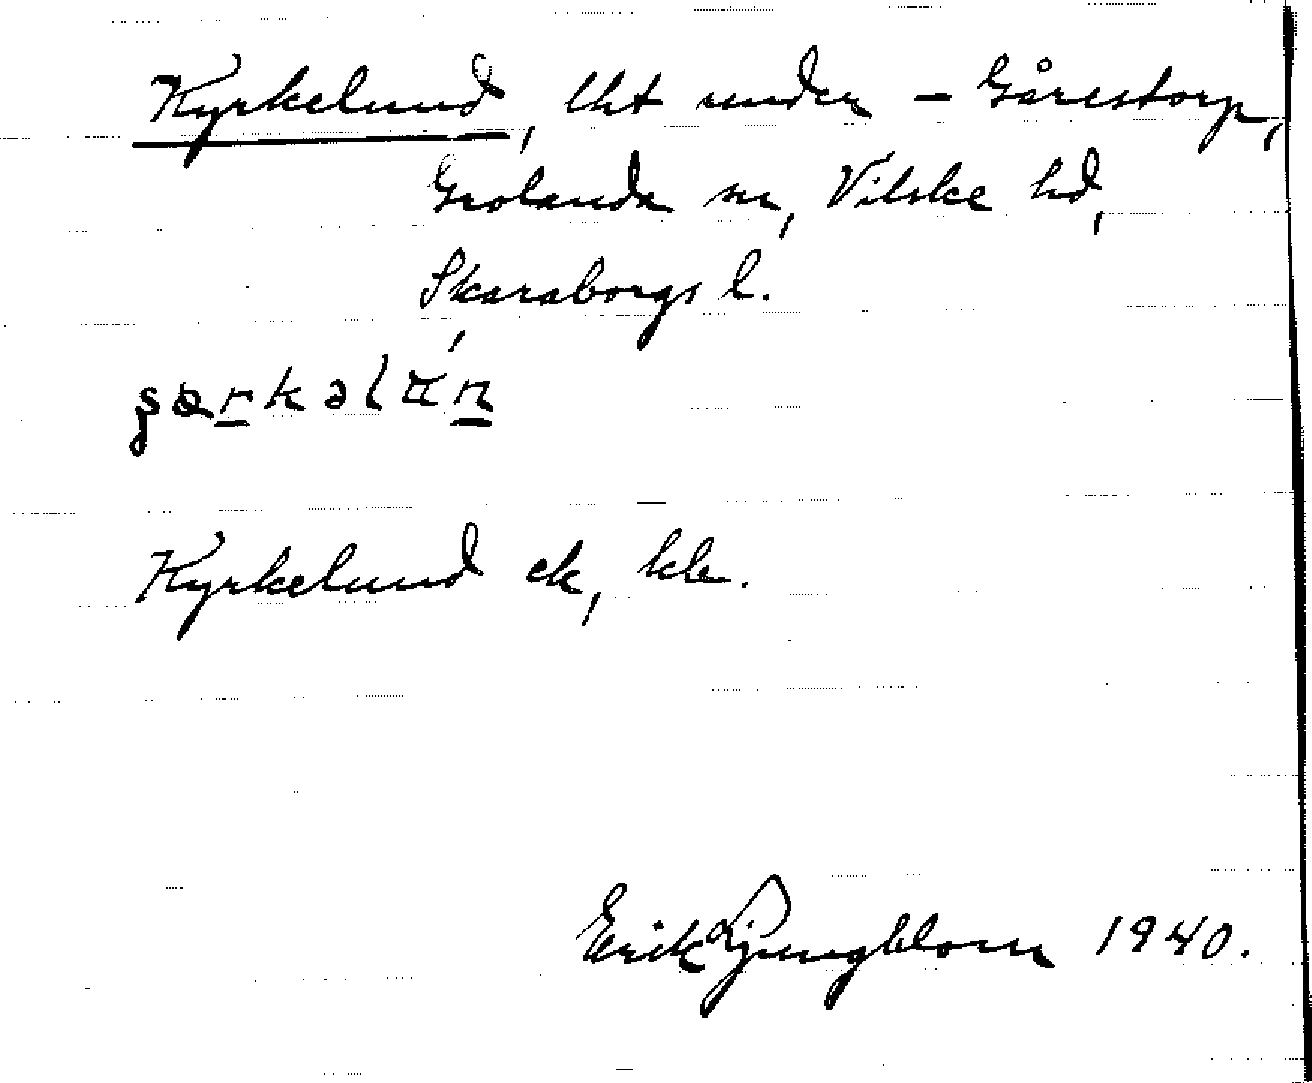 Kyrkelund, lht under – Gårestorp,
Grolanda sn, Vilske hd,
Skaraborgs l.
Kyrkelund ek, kb.
Erik Ljungblom 1940.